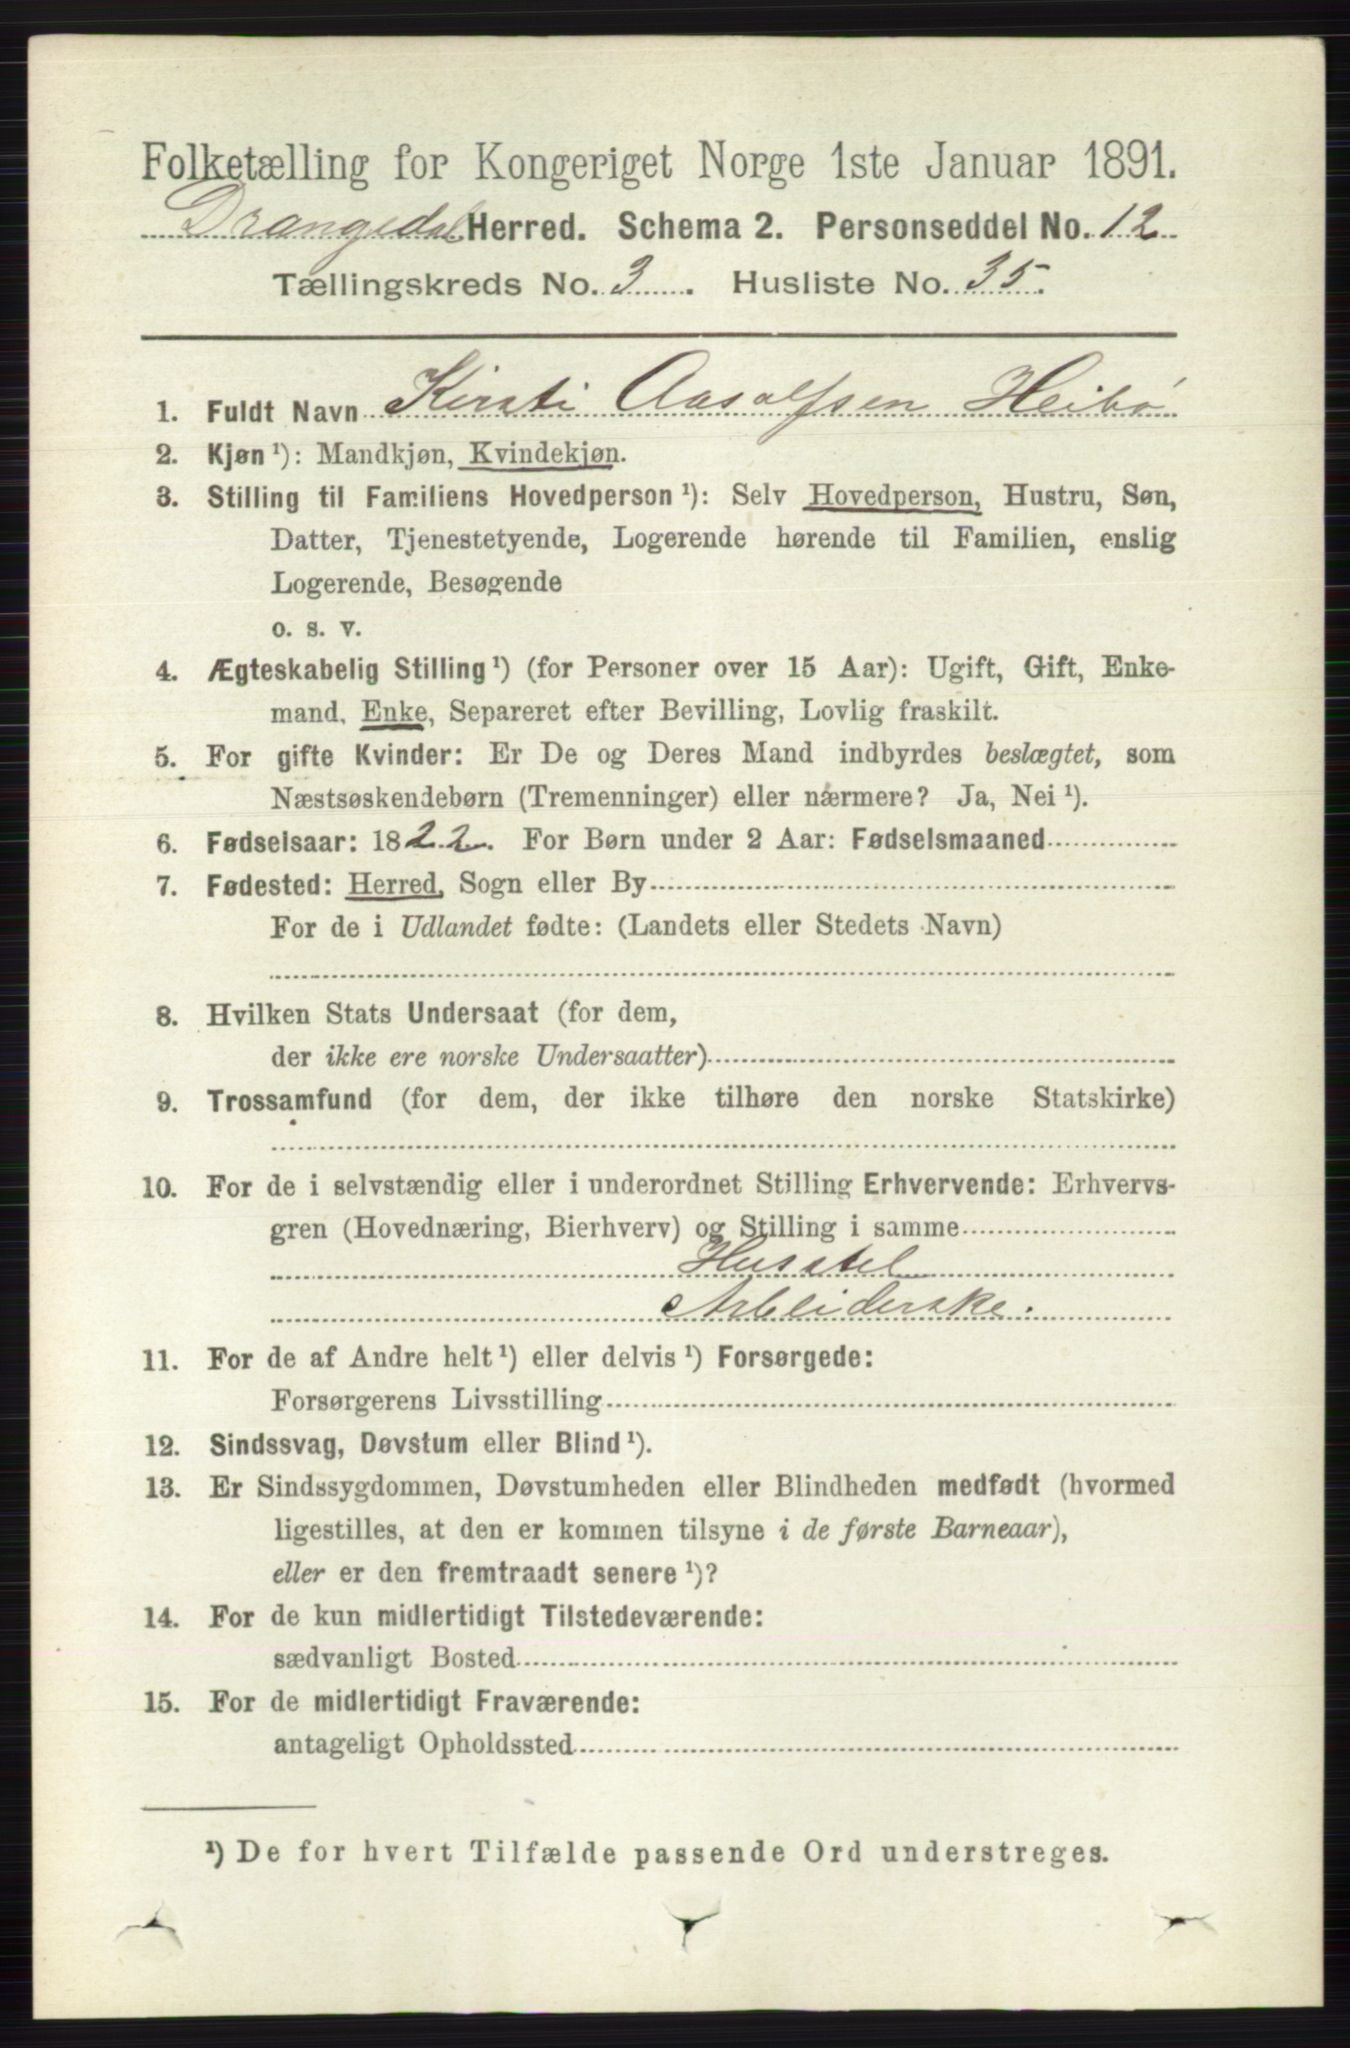 Folketælling for Kongeriget Norge 1ste Januar 1891.
Drangedal Herred. Schema 2. Personseddel No. 12
Tællingskreds No. 3. Husliste No. 35.
1. Fuldt Navn Kirsti Aasolfsen Heibö
2. Kjøn ¹): Mandkjøn, Kvindekjøn.
3. Stilling til Familiens Hovedperson ¹): Selv Hovedperson, Hustru, Søn,
Datter, Tjenestetyende, Logerende hørende til Familien, enslig
Logerende, Besøgende
o. s. v.
4. Ægteskabelig Stilling ¹) (for Personer over 15 Aar): Ugift, Gift, Enke-
mand, Enke, Separeret efter Bevilling, Lovlig fraskilt.
5. For gifte Kvinder: Er De og Deres Mand indbyrdes beslægtet, som
Næstsøskendebørn (Tremenninger) eller nærmere? Ja, Nei ¹).
6. Fødselsaar: 1822. For Børn under 2 Aar: Fødselsmaaned
7. Fødested: Herred, Sogn eller By
For de i Udlandet fødte: (Landets eller Stedets Navn)
8. Hvilken Stats Undersaat (for dem,
der ikke ere norske Undersaatter)
9. Trossamfund (for dem, der ikke tilhøre den norske Statskirke)
10. For de i selvstændig eller i underordnet Stilling Erhvervende: Erhvervs-
gren (Hovednæring, Bierhverv) og Stilling i samme
Husstel
Arbeiderske.
11. For de af Andre helt ¹) eller delvis ¹) Forsørgede:
Forsørgerens Livsstilling
12. Sindssvag, Døvstum eller Blind ¹).
13. Er Sindssygdommen, Døvstumheden eller Blindheden medfødt (hvormed
ligestilles, at den er kommen tilsyne i de første Barneaar),
eller er den fremtraadt senere ¹)?
14. For de kun midlertidigt Tilstedeværende:
sædvanligt Bosted
15. For de midlertidigt Fraværende:
antageligt Opholdssted
¹) De for hvert Tilfælde passende Ord understreges.